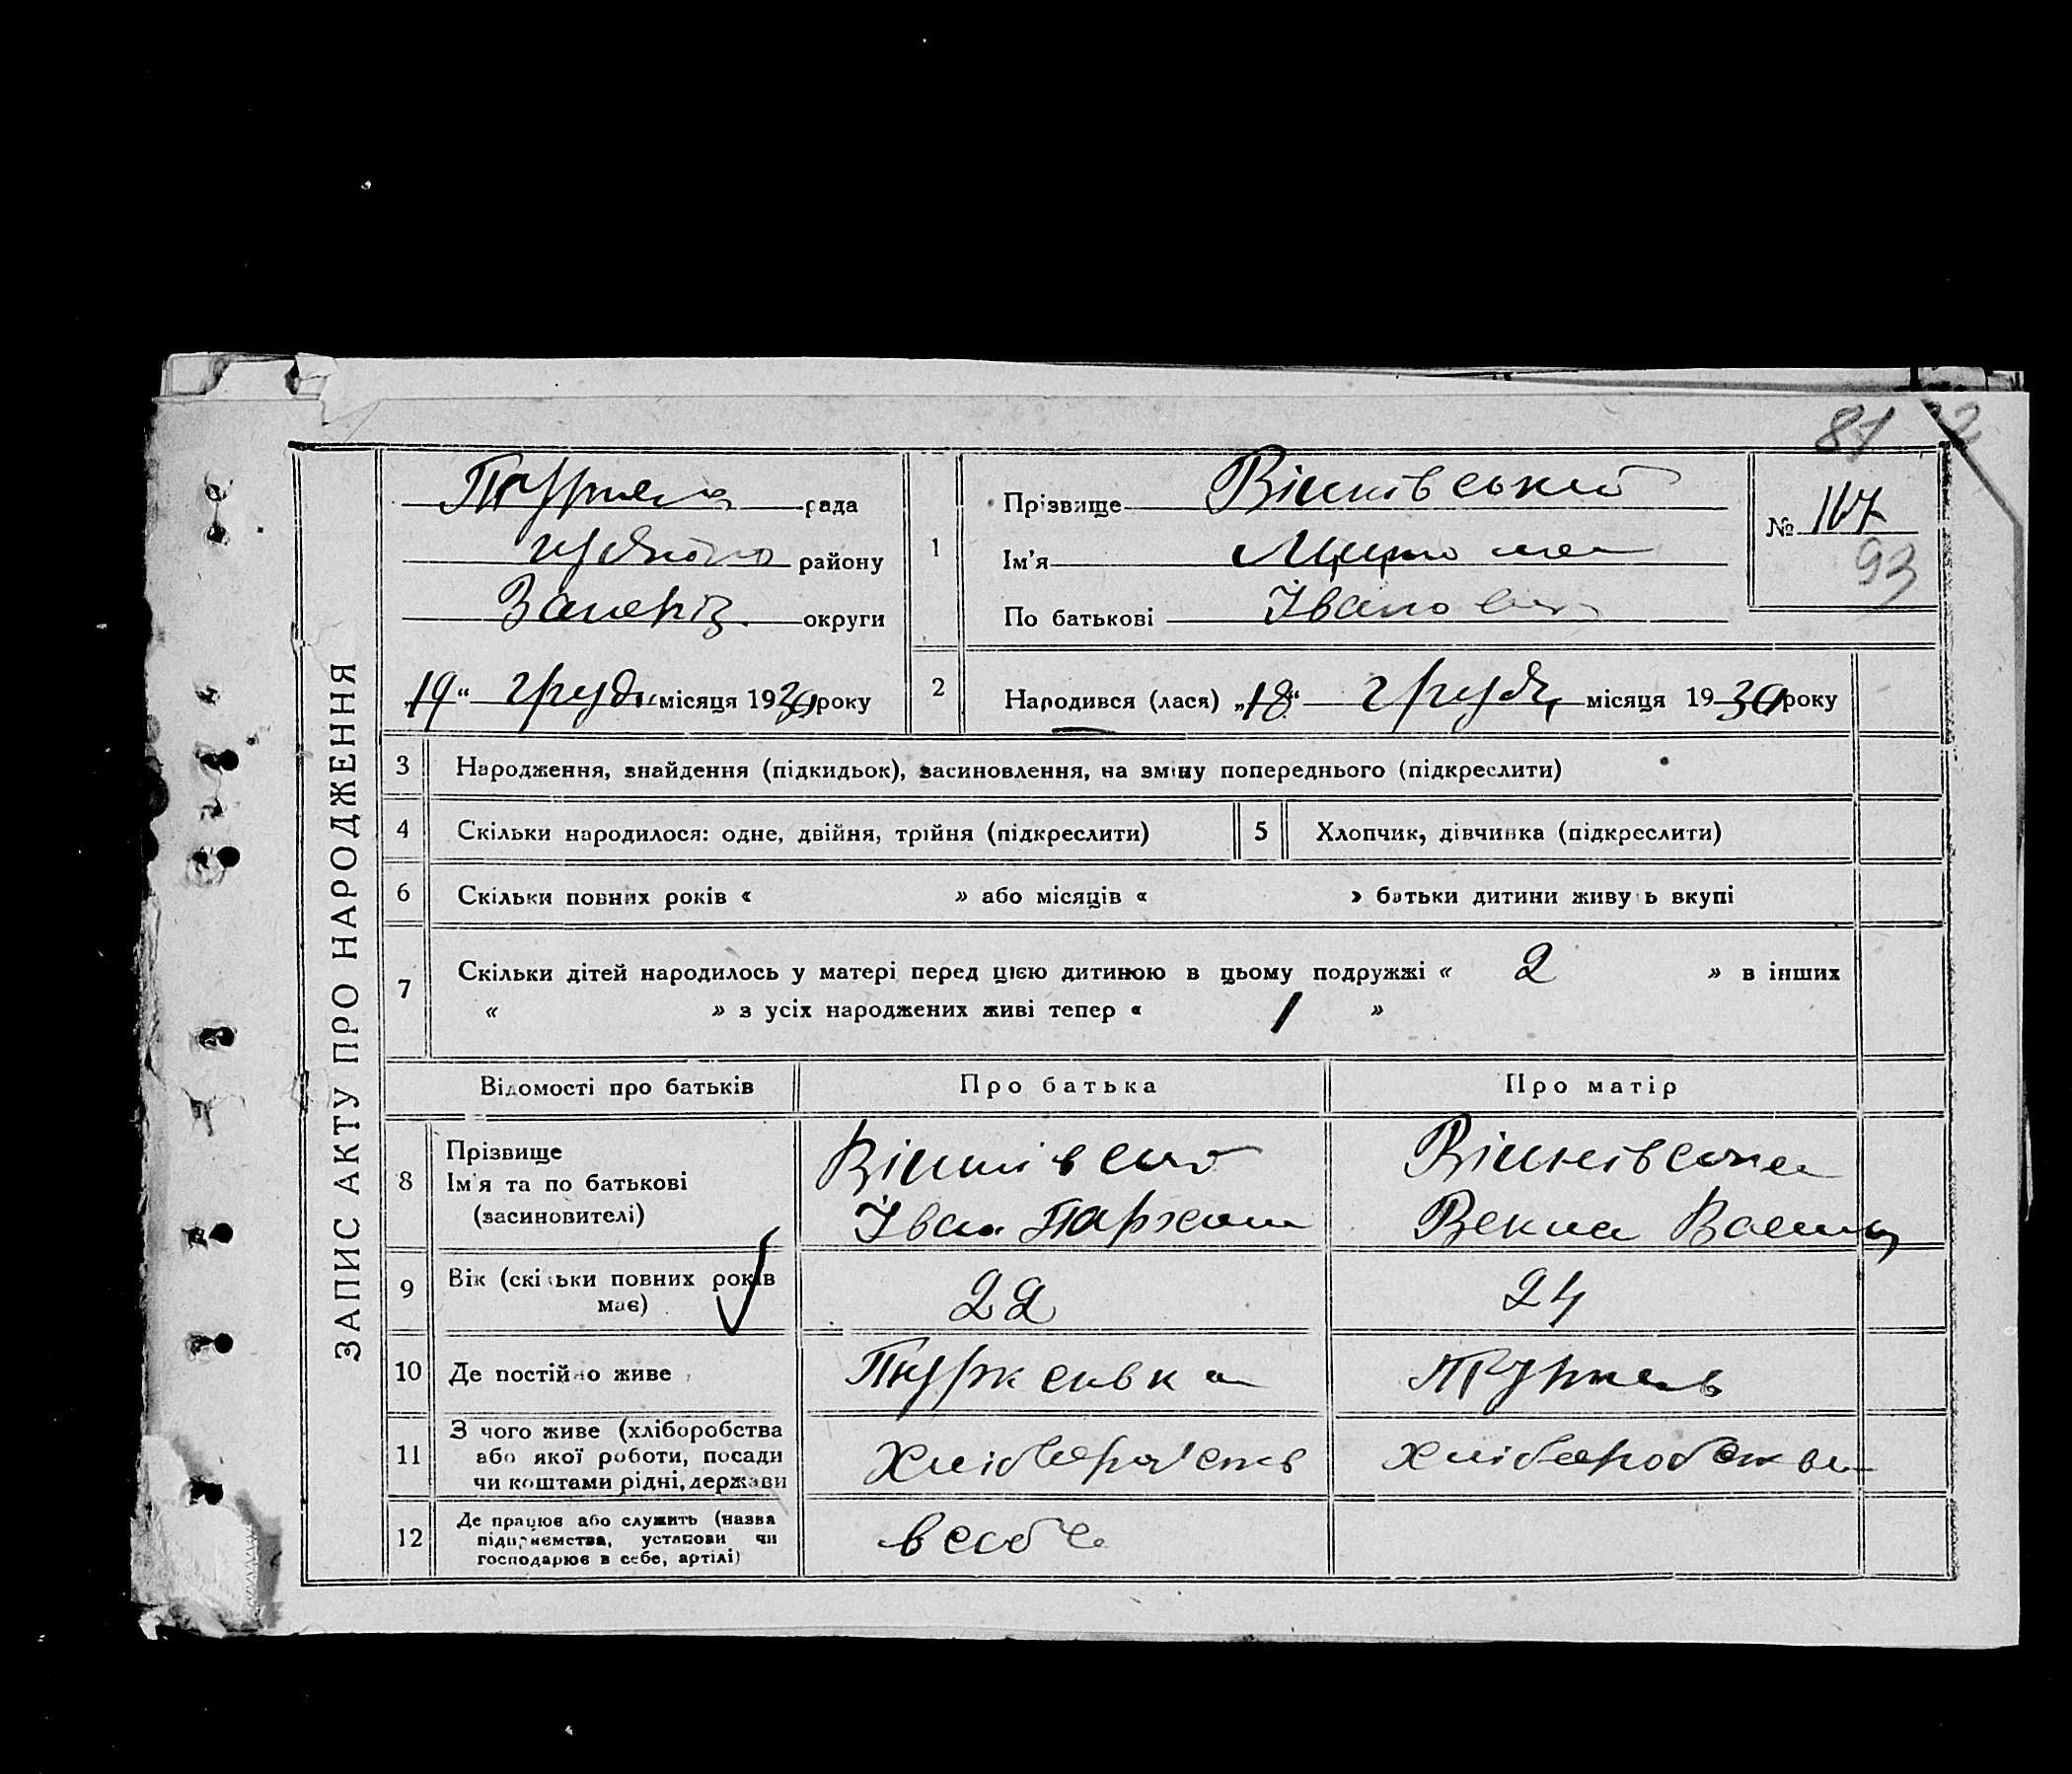 81
ЗАПИС АКТУ ПРО НАРОДЖЕННЯ
рада
району
Запоріз. округи
„19“ грудн місяця 1930 року
1
Прізвище Вінківський
Ім'я
По батькові Іванович
№ 167
93
2
Народився (лася) „18“ грудн місяця 1930 року
3 Народження, знайдення (підкидьок), засиновлення, на зміну попереднього (підкреслити)
4 Скільки народилося: одне, двійня, трійня (підкреслити)
5 Хлопчик, дівчинка (підкреслити)
6 Скільки повних років « » або місяців « » батьки дитини живуть вкупі
7 Скільки дітей народилось у матері перед цією дитиною в цьому подружжі « 2 » в інших
« » з усіх народжених живі тепер « 1 »
Відомості про батьків
Про батька
Про матір
8
Прізвище
Ім'я та по батькові
(засиновителі)
Іван Пархом
Вінківська
Векла Васил
9 Вік (скільки повних років
має)
22
24
10 Де постійно живе
11
З чого живе (хліборобства
або якої роботи, посади
чи коштами рідні, держави
хліборобств
хліборобства
12
Де працює або служить (назва
підприємства, установи чи
господарює в себе, артілі)
в себе